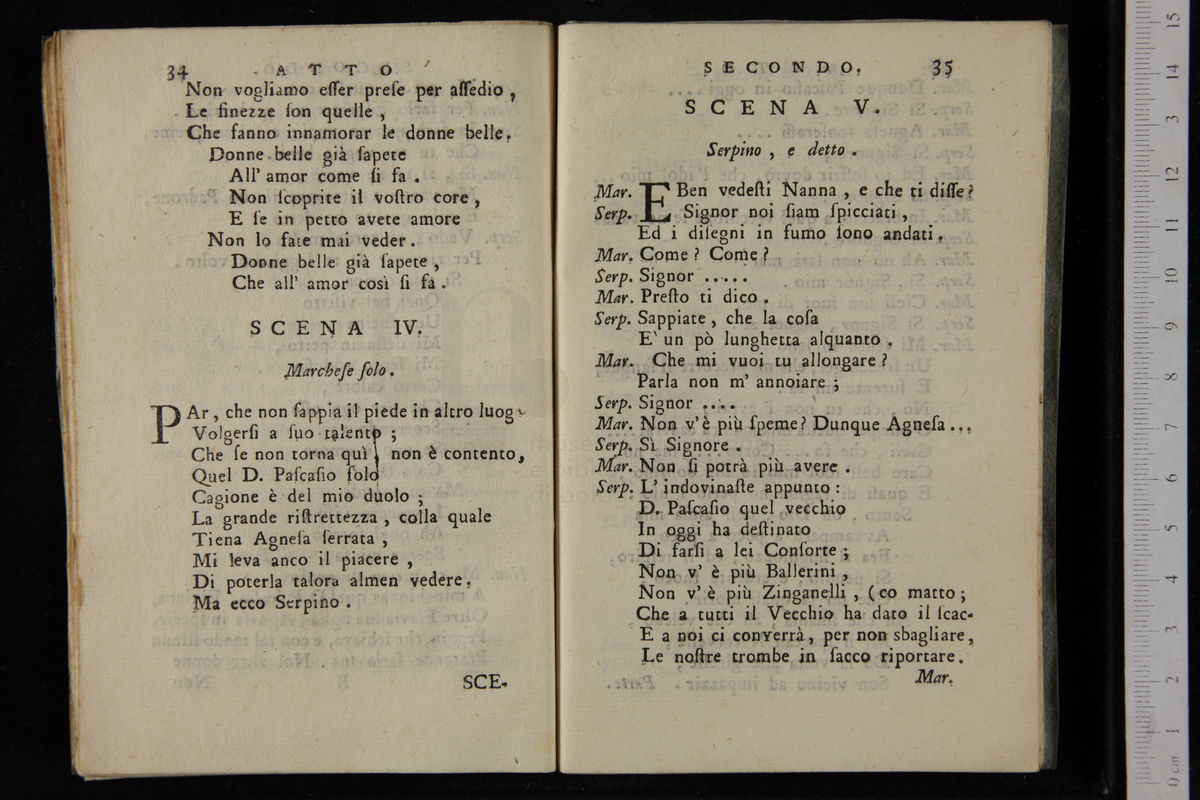 34 ATTO
Non vogliamo eſſer preſe per aſſedio ,
Le finezze ſon quelle ,
Che fanno innamorar le donne belle.
Donne belle già ſapete
All' amor come ſi fa .
Non ſcoprite il voſtro core ,
E ſe in petto avete amore
Non lo fate mai veder .
Donne belle già ſapete ,
Che all' amor così ſi fa .
SCENA IV.
Marcheſe ſolo .
PAr , che non ſappia il piede in altro luog
Volgerſi a ſuo talento ;
Che ſe non torna quì , non è contento,
Quel D. Paſcaſio ſolo
Cagione è del mio duolo ;
La grande riſtrettezza , colla quale
Tiena Agneſa ſerrata ,
Mi leva anco il piacere ,
Di poterla talora almen vedere.
Ma ecco Serpino .
SCE-
SECONDO. 35
SCENA V.
Serpino , e detto .
Mar. EBen vedeſti Nanna , e che ti diſſe ?
Serp. Signor noi ſiam ſpicciati ,
Ed i diſegni in fumo ſono andati.
Mar. Come ? Come ?
Serp. Signor .....
Mar. Preſto ti dico .
Serp. Sappiate , che la coſa
E' un pò lunghetta alquanto .
Mar. Che mi vuoi tu allongare ?
Parla non m' annoiare ;
Serp. Signor ....
Mar. Non v'è più ſpeme ? Dunque Agneſa ...
Serp. Sì Signore .
Mar. Non ſi potrà più avere .
Serp. L' indovinaſte appunto :
D. Paſcaſio quel vecchio
In oggi ha deſtinato
Di farſi a lei Conſorte ;
Non v' è più Ballerini ,
Non v' è più Zinganelli , (co matto ;
Che a tutti il Vecchio ha dato il ſcac-
E a noi ci converrà , per non sbagliare,
Le noſtre trombe in ſacco riportare .
Mar.